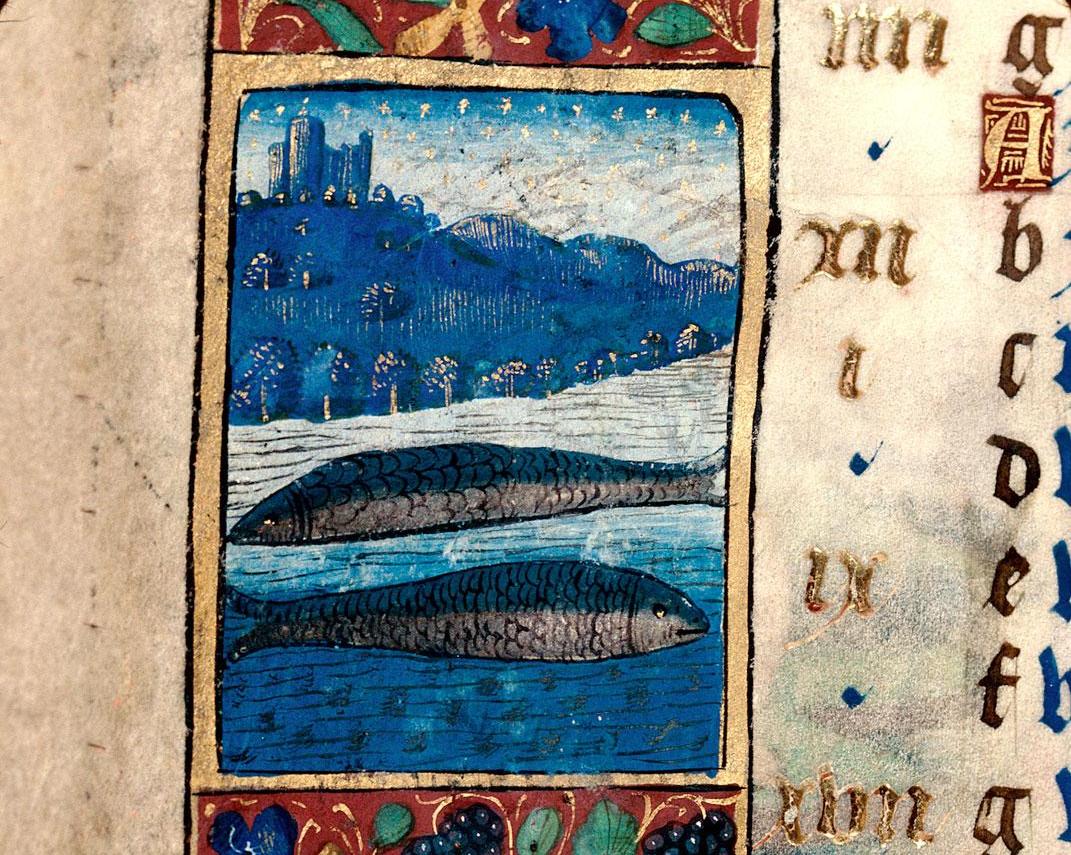 iiii g
A
xii b
i c
d
ix e
f
xvii g